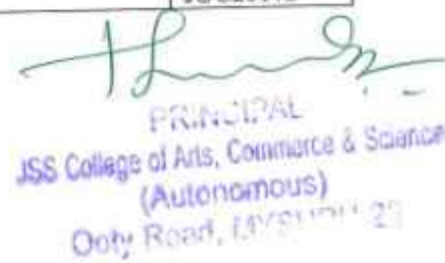 PRINCIPAL
JSS College of Arts, Commerce & Science
(Autonomous)
Ooty Road,